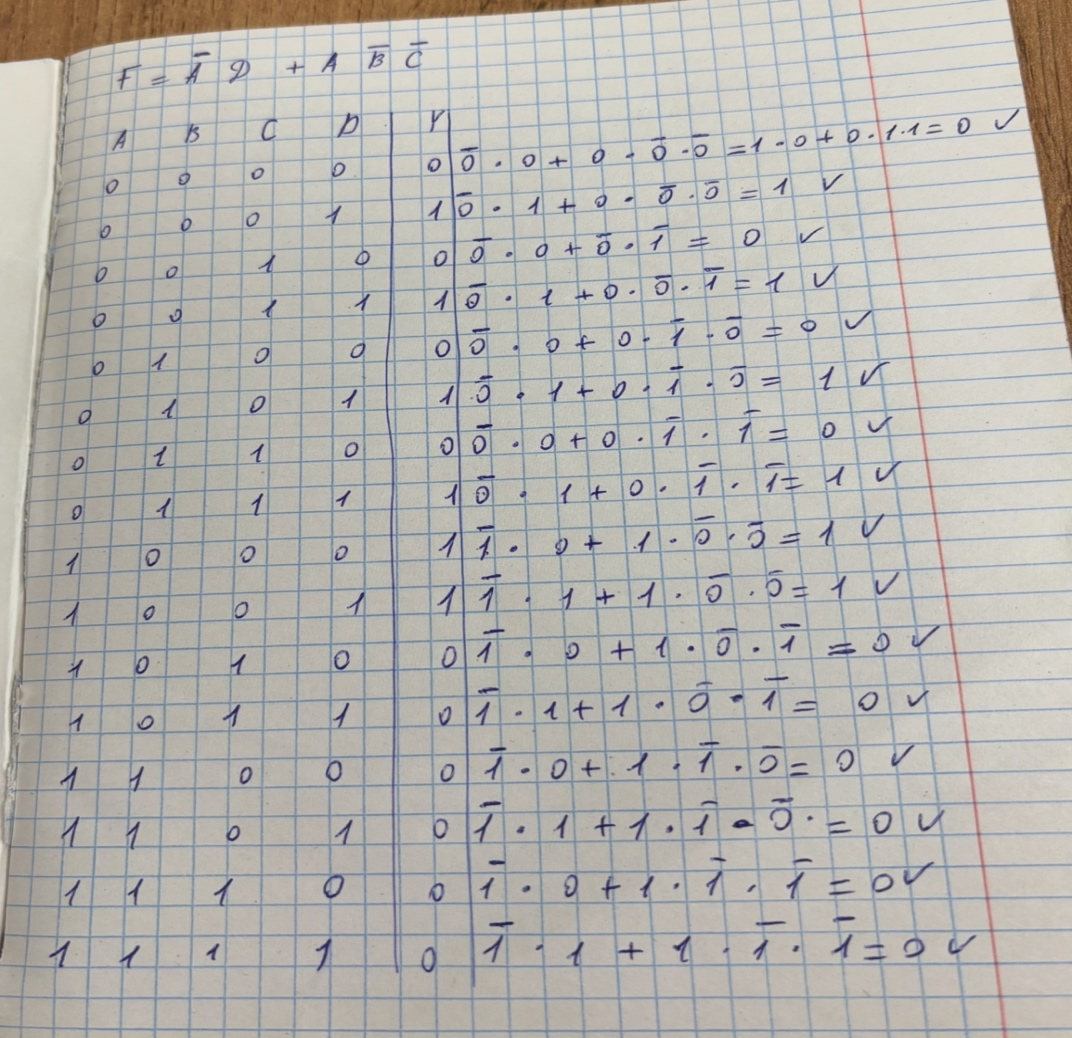 F = A̅ D + A B̅ C̅
A B C D Y
0 0 0 0 0 0̅ · 0 + 0 · 0̅ · 0̅ = 1 · 0 + 0 · 1 · 1 = 0 ✓
0 0 0 1 1 0̅ · 1 + 0 · 0̅ · 0̅ = 1 ✓
0 0 1 0 0 0̅ · 0 + 0̅ · 1̅ = 0 ✓
0 0 1 1 1 0̅ · 1 + 0 · 0̅ · 1̅ = 1 ✓
0 1 0 0 0 0̅ · 0 + 0 · 1̅ · 0̅ = 0 ✓
0 1 0 1 1 0̅ · 1 + 0 · 1̅ · 0̅ = 1 ✓
0 1 1 0 0 0̅ · 0 + 0 · 1̅ · 1̅ = 0 ✓
0 1 1 1 1 0̅ · 1 + 0 · 1̅ · 1̅ = 1 ✓
1 0 0 0 1 1̅ · 0 + 1 · 0̅ · 0̅ = 1 ✓
1 0 0 1 1 1̅ · 1 + 1 · 0̅ · 0̅ = 1 ✓
1 0 1 0 0 1̅ · 0 + 1 · 0̅ · 1̅ = 0 ✓
1 0 1 1 0 1̅ · 1 + 1 · 0̅ · 1̅ = 0 ✓
1 1 0 0 0 1̅ · 0 + 1 · 1̅ · 0̅ = 0 ✓
1 1 0 1 0 1̅ · 1 + 1 · 1̅ · 0̅ · = 0 ✓
1 1 1 0 0 1̅ · 0 + 1 · 1̅ · 1̅ = 0 ✓
1 1 1 1 0 1̅ · 1 + 1 · 1̅ · 1̅ = 0 ✓